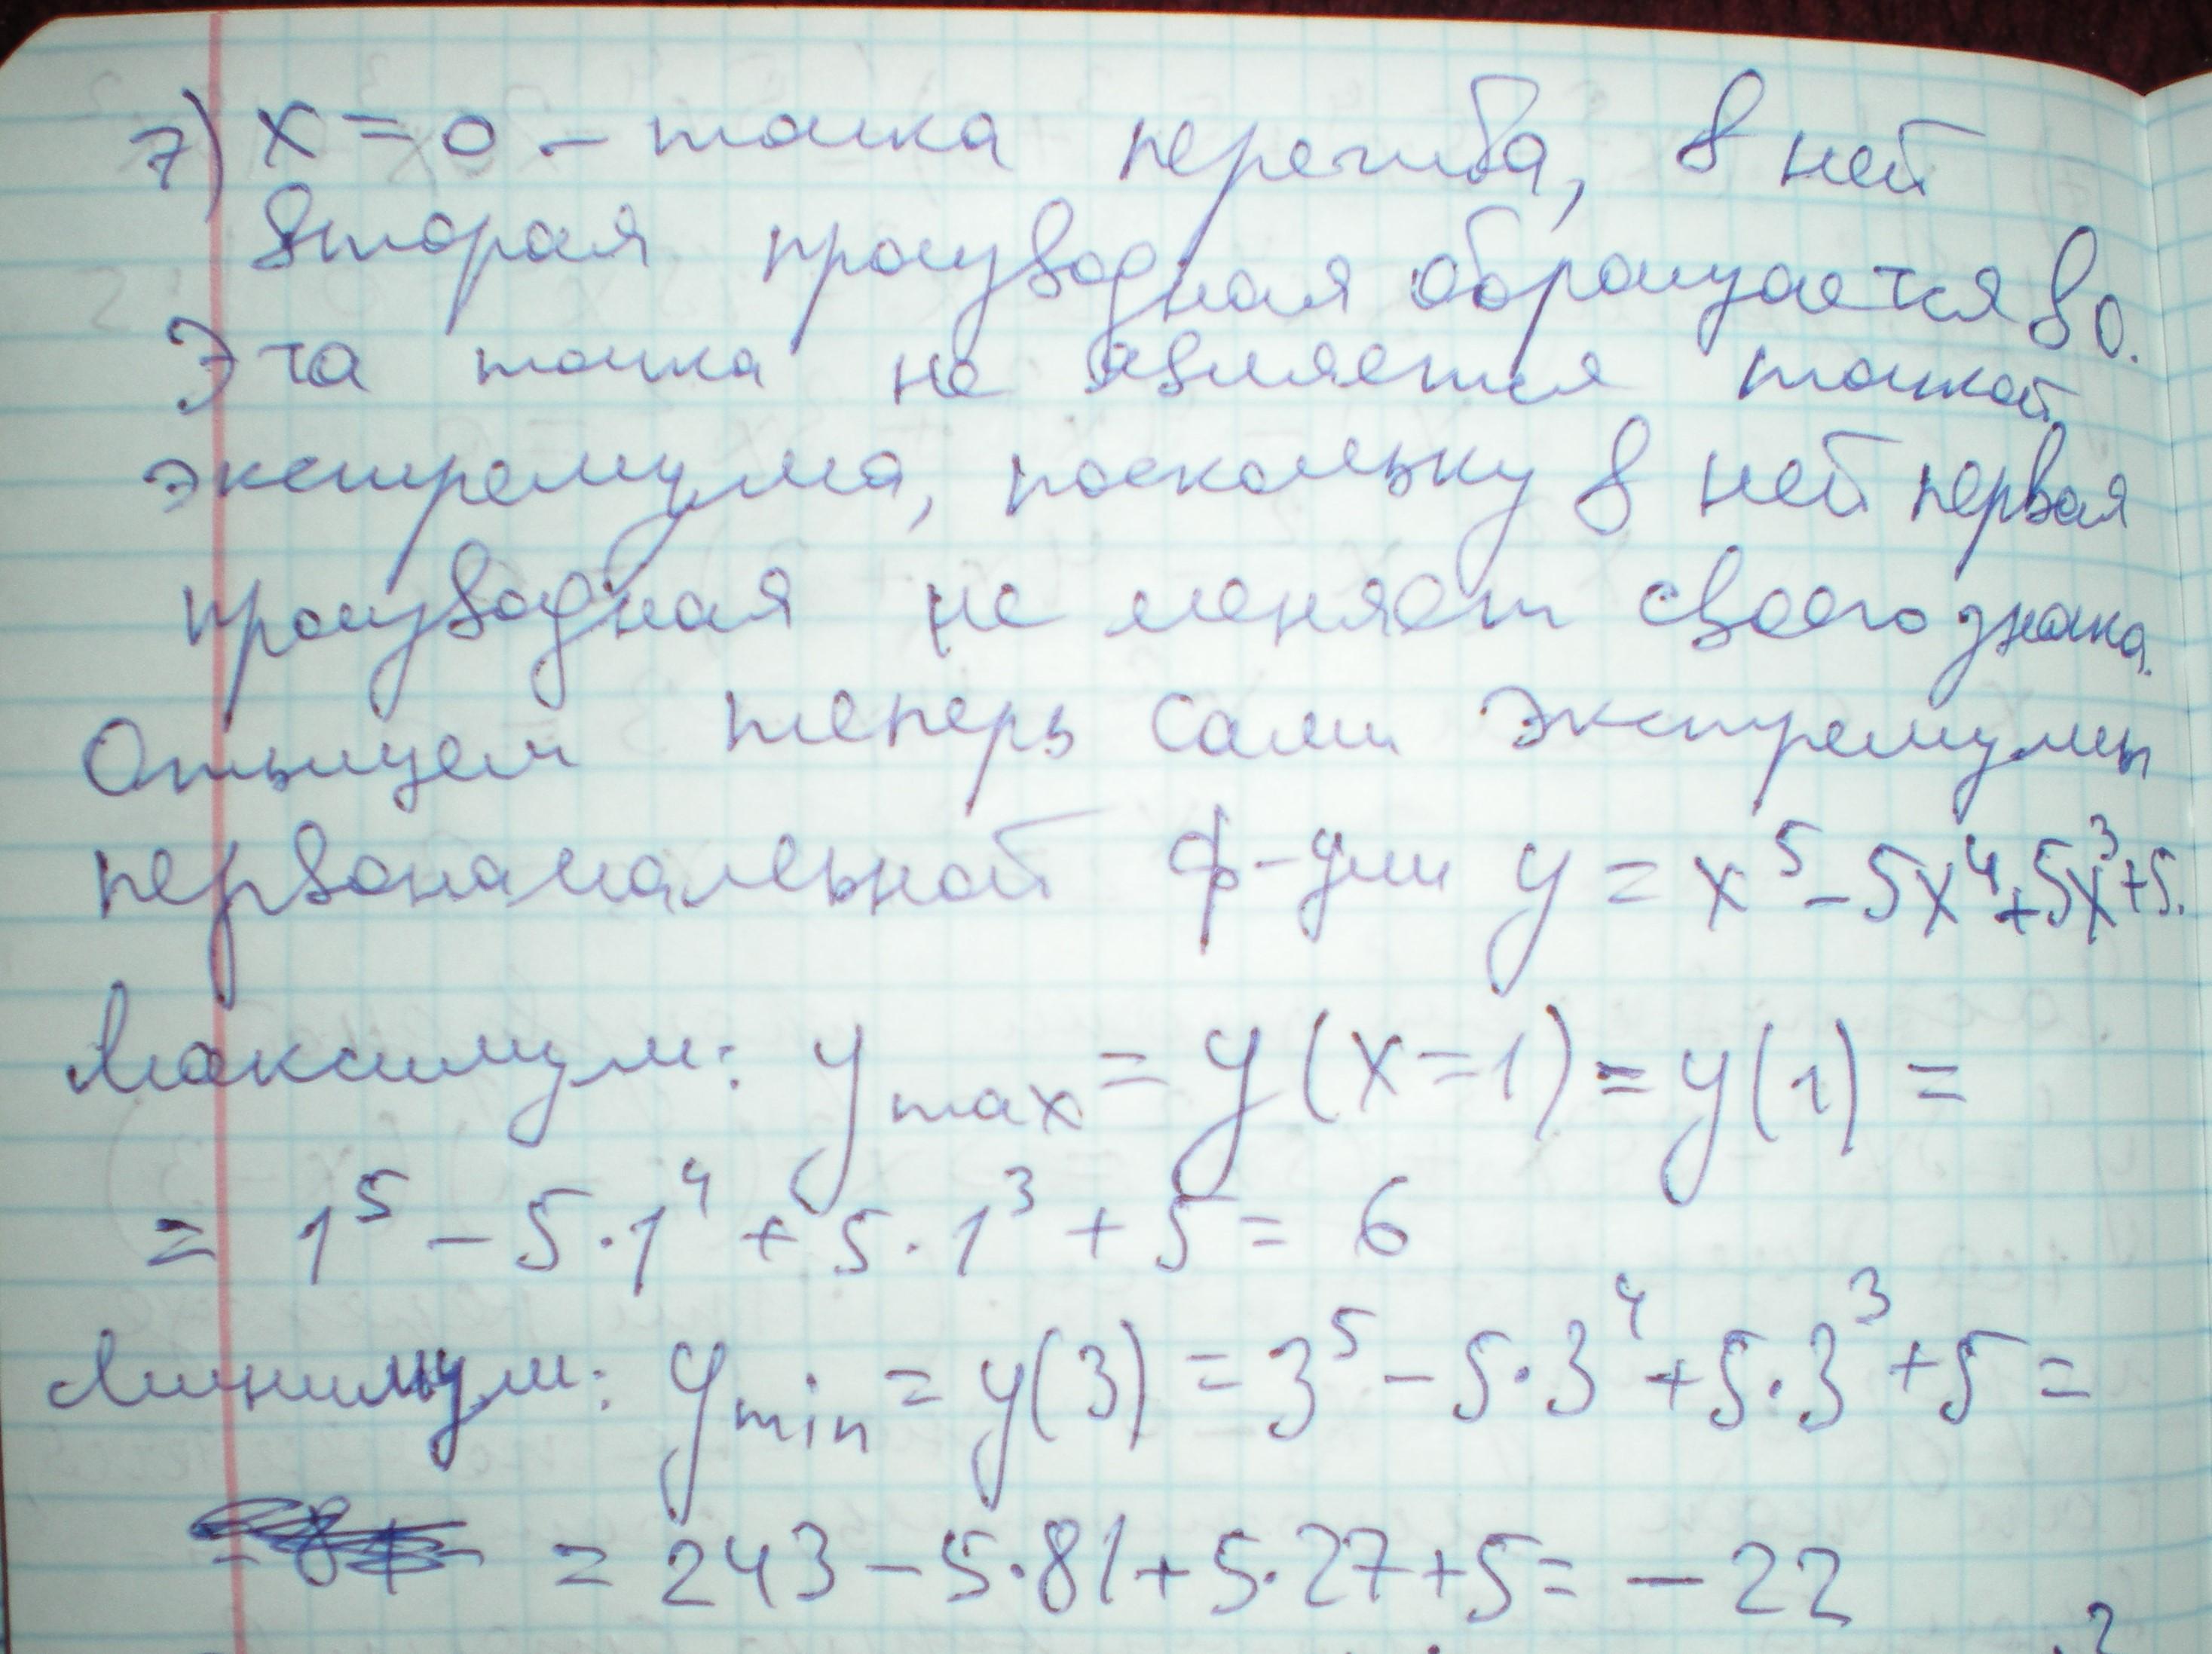 7) x = 0 – точка перегиба, в ней
вторая производная обращается в 0.
Эта точка не является точкой
экстремума, поскольку в ней первая
производная не меняет своего знака.
Отыщем теперь сами экстремумы
первоначальной ф-ции y = x⁵ – 5x⁴ + 5x³ + 5.
Максимум: y max = y (x = 1) = y (1) =
= 1⁵ – 5·1⁴ + 5·1³ + 5 = 6
Минимум: y min = y(3) = 3⁵ – 5·3⁴ + 5·3³ + 5 =
= 243 – 5·81 + 5·27 + 5 = – 22